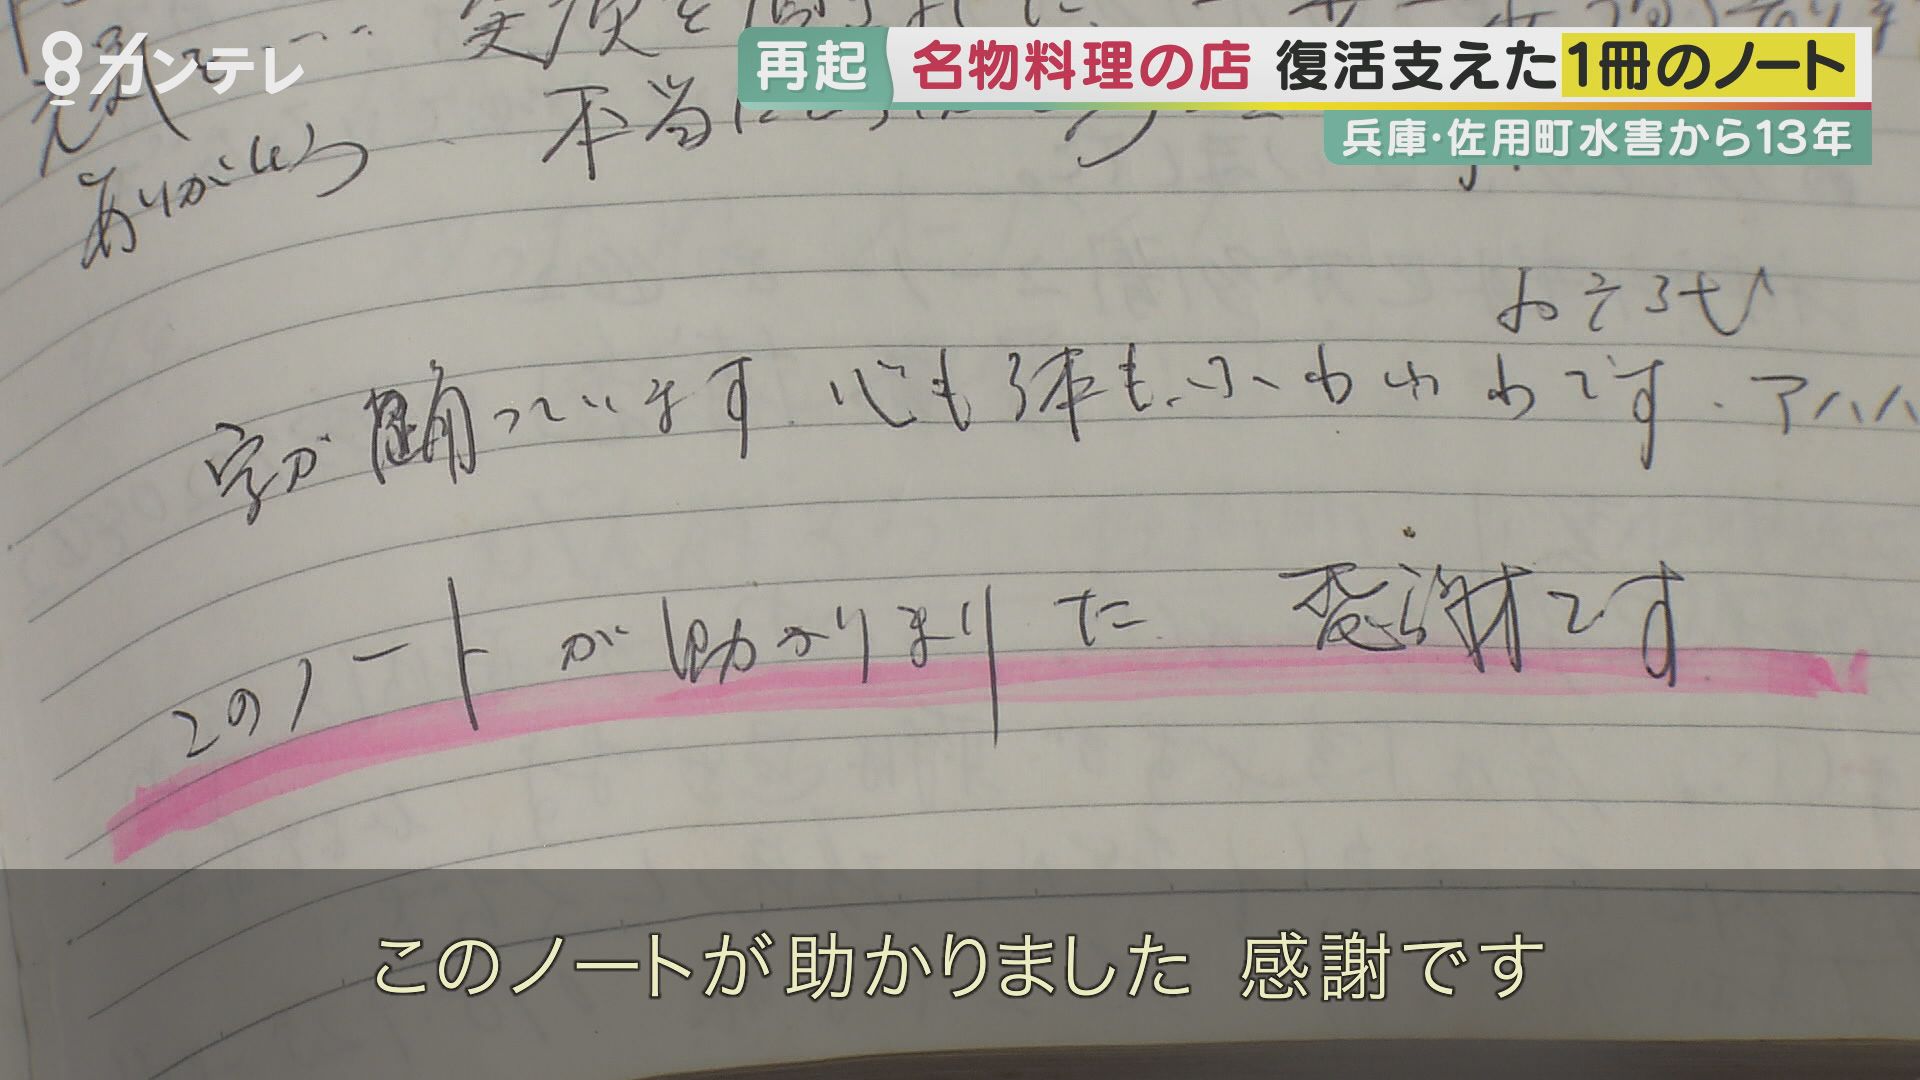 8カンテレ
再起 名物料理の店 復活支えた1冊のノート
兵庫・佐用町水害から13年
元気で…
ありがとう
本当に
おそろしい
字が踊っています 心も体も、ふわふわです. アハハ
このノートが助かりました 感謝です
このノートが助かりました 感謝です